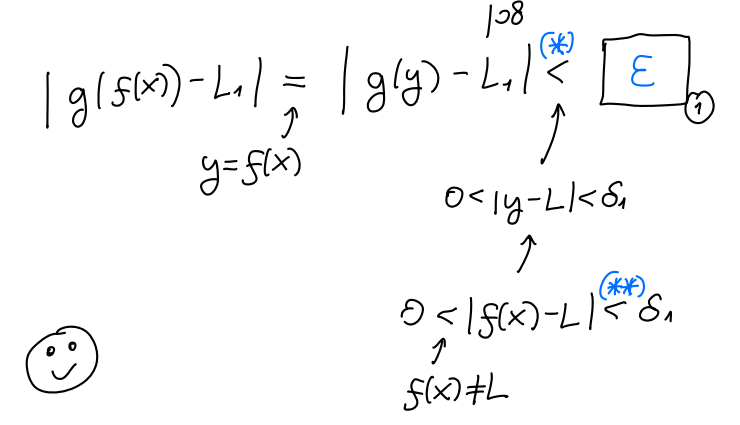 |ɔ8
| g(f(x)) - L₁ | = | g(y) - L₁ | <^(*) ε ①
y = f(x)
0 < |y - L| < δ₁
0 < |f(x) - L| <^(**) δ₁
f(x) ≠ L